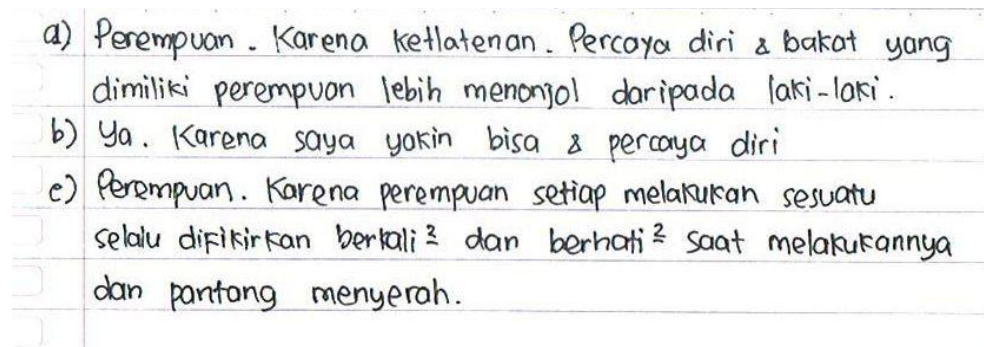 a) Perempuan. Karena ketlatenan. Percaya diri & bakat yang
dimiliki perempuan lebih menonjol daripada laki-laki.
b) Ya. Karena saya yakin bisa & percaya diri
e) Perempuan. Karena perempuan setiap melakukan sesuatu
selalu difikirkan berkali² dan berhati² saat melakukannya
dan pantang menyerah.